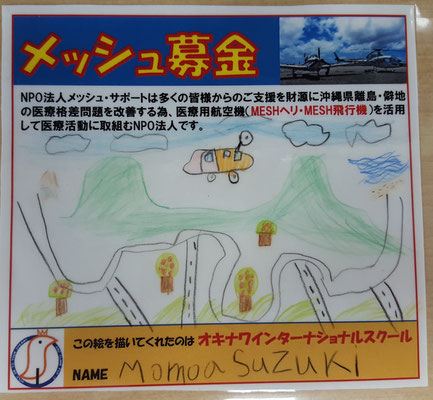 メッシュ募金
NPO法人メッシュ・サポートは多くの皆様からのご支援を財源に沖縄県離島・僻地
の医療格差問題を改善する為、医療用航空機(MESHヘリ・MESH飛行機)を活用
して医療活動に取組むNPO法人です。
この絵を描いてくれたのは オキナワインターナショナルスクール
NAME Momoa SUZUKI